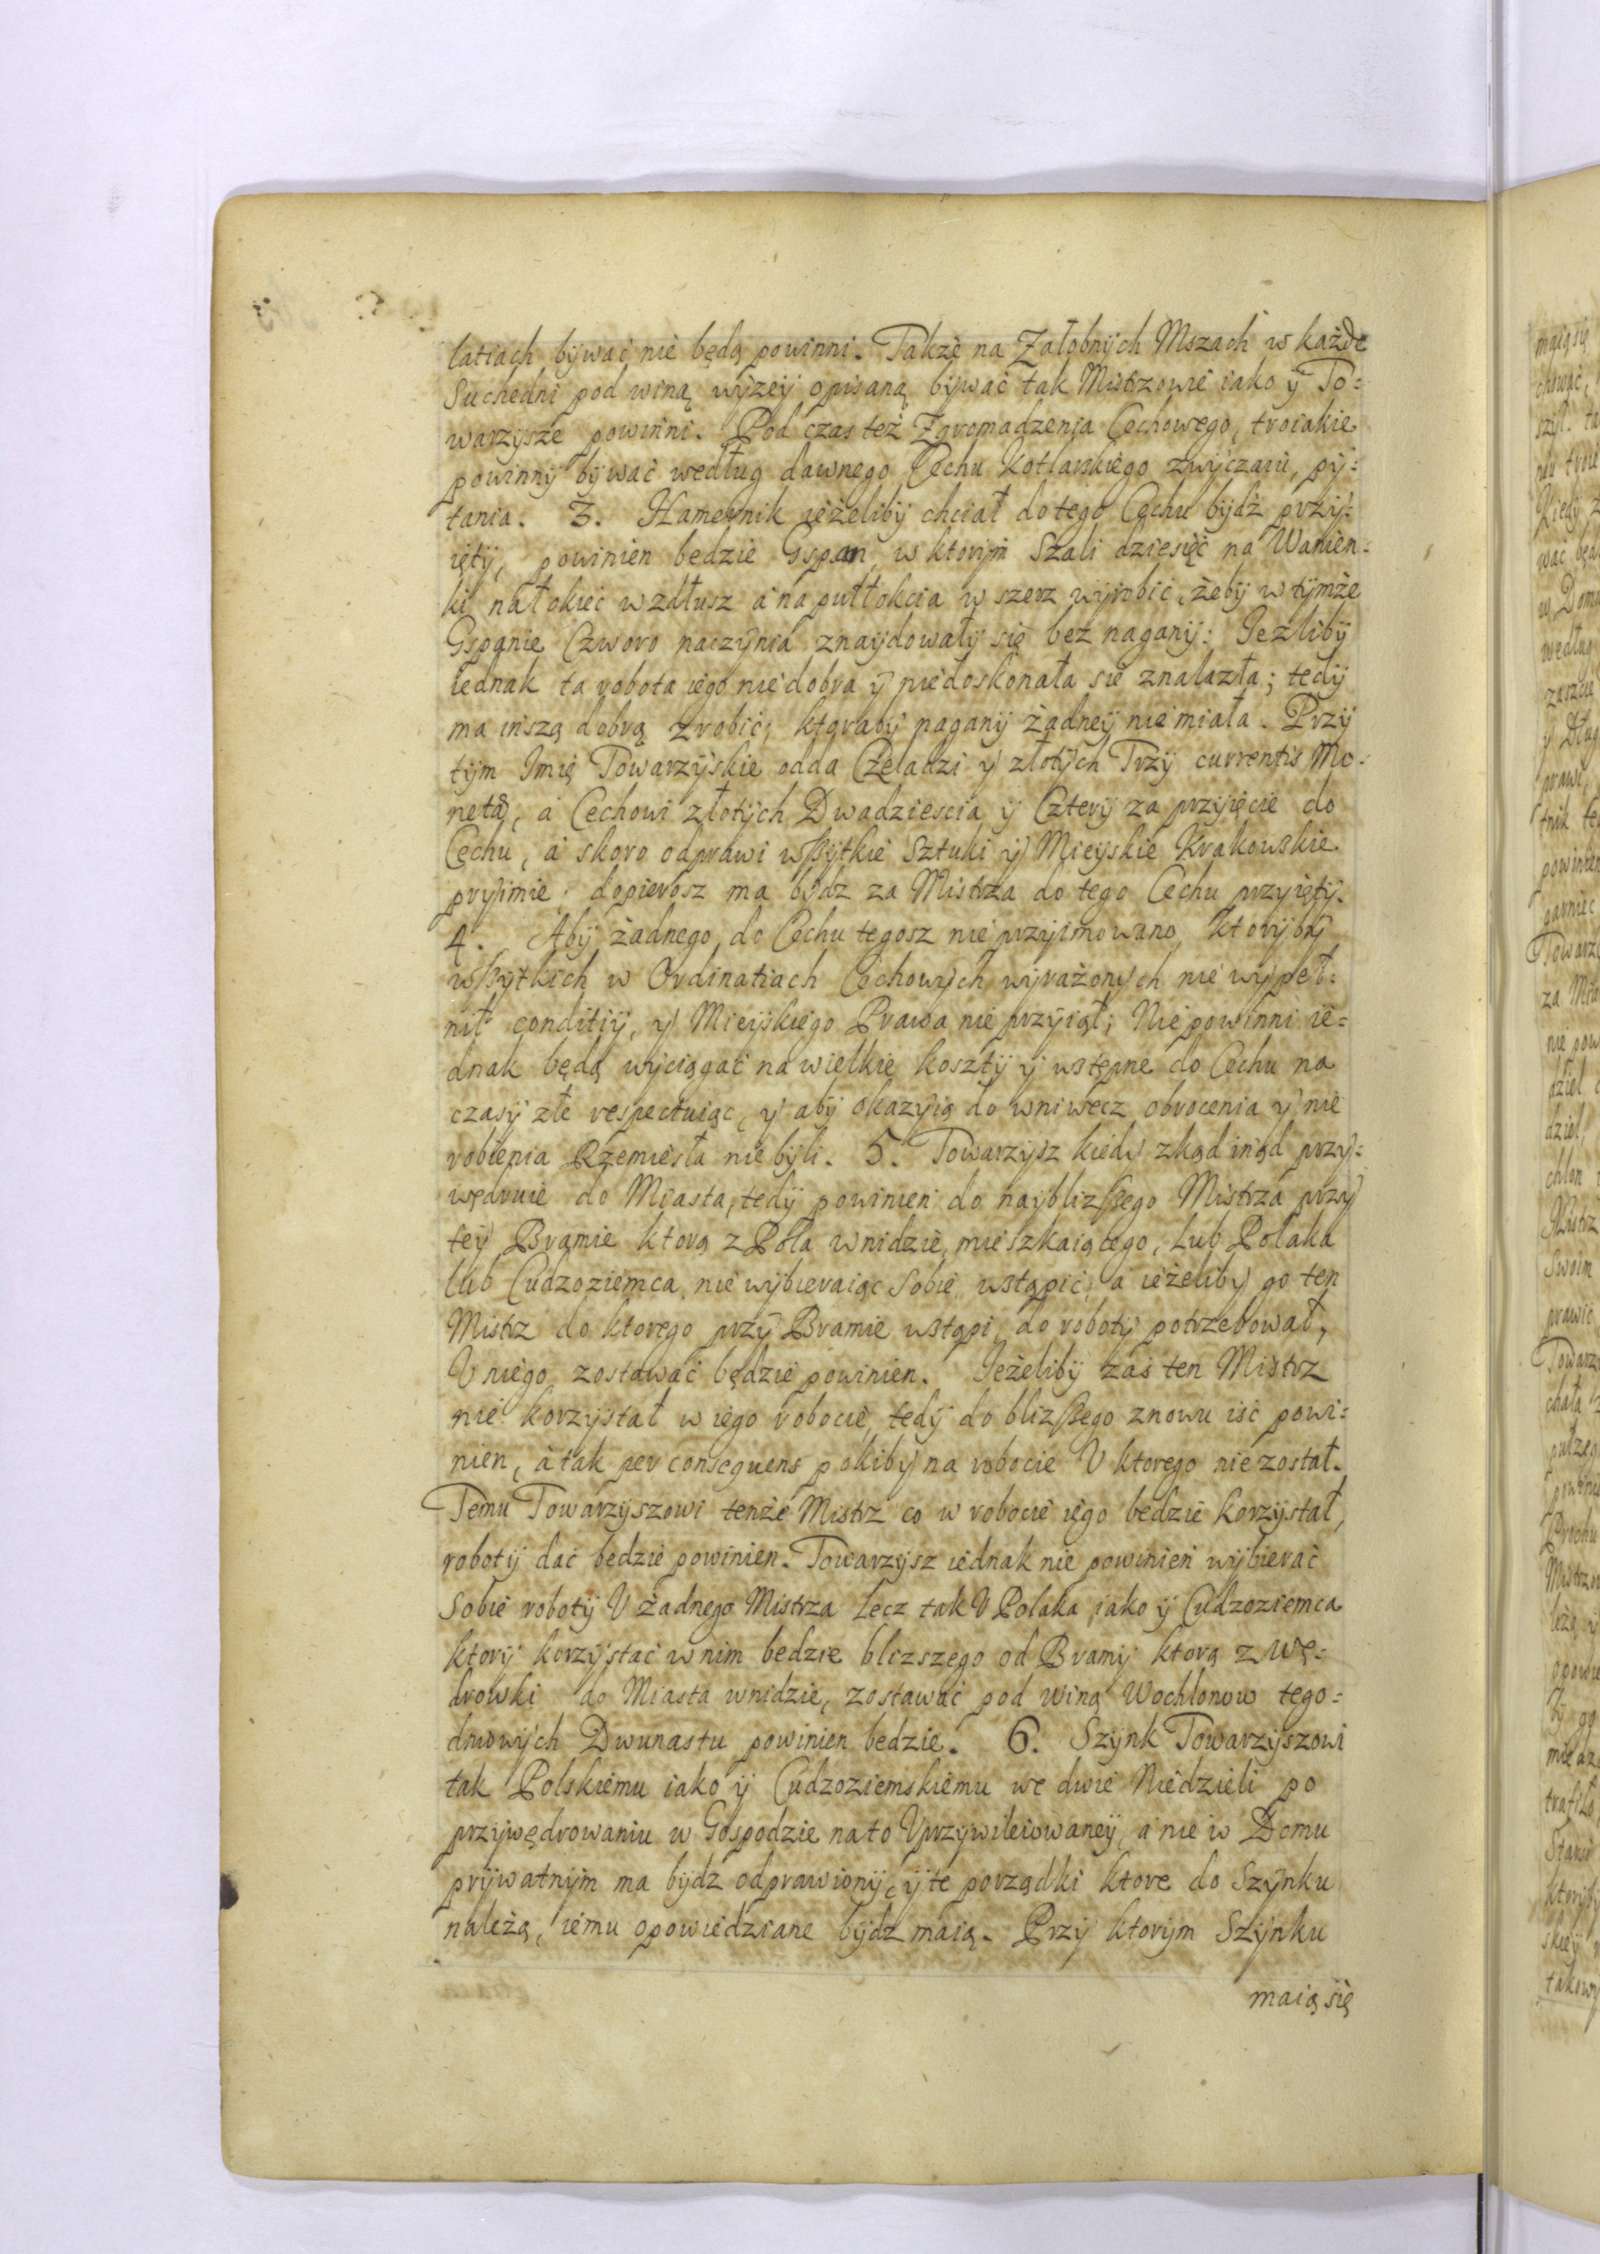 latiach bywać nie będą powinni. Także na Załobnych Mszach w każde
Suchedni pod winą wyżey opisaną bywać tak Mistrzowie iako y To=
warzysze powinni. Pod czas też Zgromadzenia Cechowego, troiakie
powinny bywać według dawnego Cechu Kotlarskiego zwyczaiu, py=
tania. 3. Hamernik ieżeliby chciał do tego Cechu bydź przy=
ięty, powinien bedzie Gspan, w ktorym Szali dziesięć na Wanien=
ki na łokieć wzdłusz a na pułłokcia w szerz wyrobić, żeby w tymże
Gspanie Czworo naczynia znaydowały się bez nagany: Iezliby
iednak ta robota iego nie dobra y niedoskonała sie znalazła; tedy
ma inszą dobrą zrobić, ktoraby nagany żadney nie miała. Przy
tym Imię Towarzyskie odda Czeladzi y złotych Trzy currentis Mo=
netæ, a Cechowi złotych Dwadziescia y Cztery za przyięcie do
Cechu, a skoro odprawi wszytkie Sztuki y Mieyskie Krakowskie
pryimie, dopierosz ma bydz za Mistrza do tego Cechu przyięty.
4. Aby żadnego do Cechu tegosz nie przyimowano, ktoryby
wszytkich w Ordinatiach Cechowych wyrażonych nie wypeł=
nił conditiy, y Mieyskiego Prawa nie przyiął; Nie powinni ie=
dnak będą wyciągać na wielkie koszty y wstępne do Cechu na
czasy złe respectuiąc, y aby okazyią do wniwecz obrocenia y nie
robienia Rzemiesła nie byli. 5. Towarzysz kiedy zkąd inąd przy=
wędruie do Miasta, tedy powinien do naybliższego Mistrza przy
tey Bramie ktorą z Pola wnidzie, mieszkaiącego, lub Polaka
lub Cudzoziemca, nie wybieraiąc Sobie wstąpić, a ieżeliby go ten
Mistrz do ktorego przy Bramie wstąpi, do roboty potrzebował,
V niego zostawać będzie powinien. Jeżeliby zaś ten Mistrz
nie korzystał w iego robocie, tedy do bliższego znowu iść powi=
nien, à tak per consequens pokiby na robocie V ktorego nie został.
Temu Towarzyszowi tenże Mistrz co w robocie iego bedzie korzystał,
roboty dac bedzie powinien. Towarzysz iednak nie powinien wybierać
Sobie roboty V żadnego Mistrza Lecz tak V Polaka iako y Cudzoziemca
ktory korzystać w nim bedzie blizszego od Bramy ktorą z Wę=
drowki do Miasta wnidzie, zostawać pod winą Wochlonow tego=
dniowych Dwunastu powinien bedzie. 6. Szynk Towarzyszowi
tak Polskiemu iako y Cudzoziemskiemu we dwie Niedzieli po
przywędrowaniu w Gospodzie na to Vprzywileiowaney, a nie w Domu
prywatnym ma bydz odprawiony, y te porządki ktore do Szynku
należą, iemu opowiedziane bydz maią. Przy ktorym Szynku
maią się